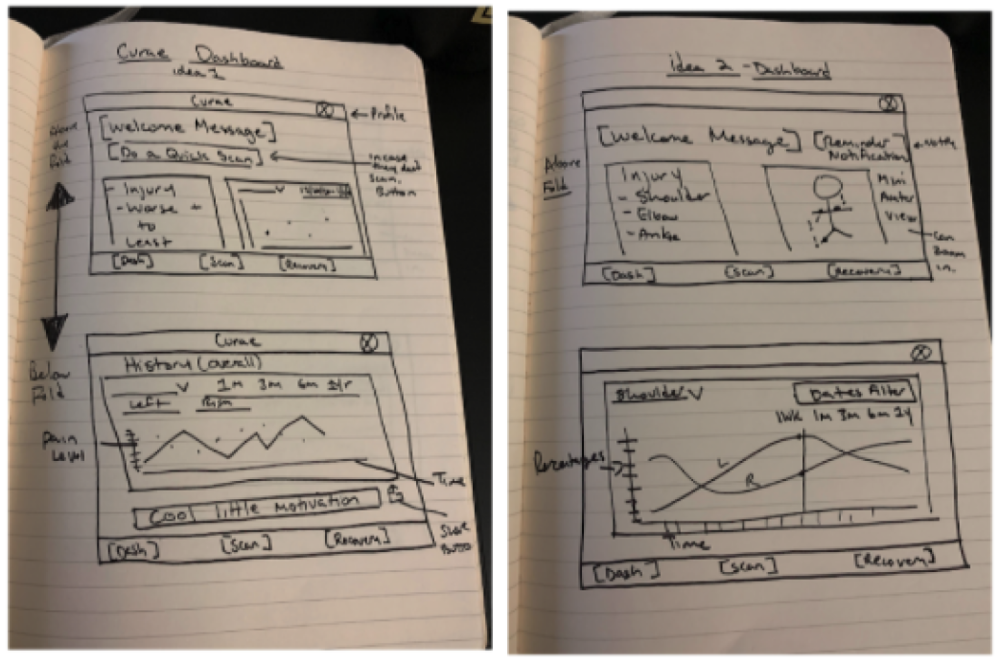 Curae Dashboard
idea 1
Curae
← Profile
Above
the
fold
[Welcome Message]
[Do a Quick Scan]
in case
they last
Scan.
Button
- Injury
- Worse
to
Least
[Dash] [Scan] [Recovery]
Below
Fold
Curae
History (overall)
1m 3m 6m 1yr
Left
Pain
Level
Time
Cool little motivation
[Dash] [Scan] [Recovery]
idea 2 - Dashboard
Above
Fold
[Welcome Message] [Reminder
Notification]
Injury
- Shoulder
- Elbow
- Ankle
Mini
Avatar
View
Can
Zoom
in.
[Dash] [Scan] [Recovery]
Shoulder
Dates Filter
1WK 1m 3m 6m 1y
Percentages
L
R
Time
[Dash] [Scan] [Recovery]